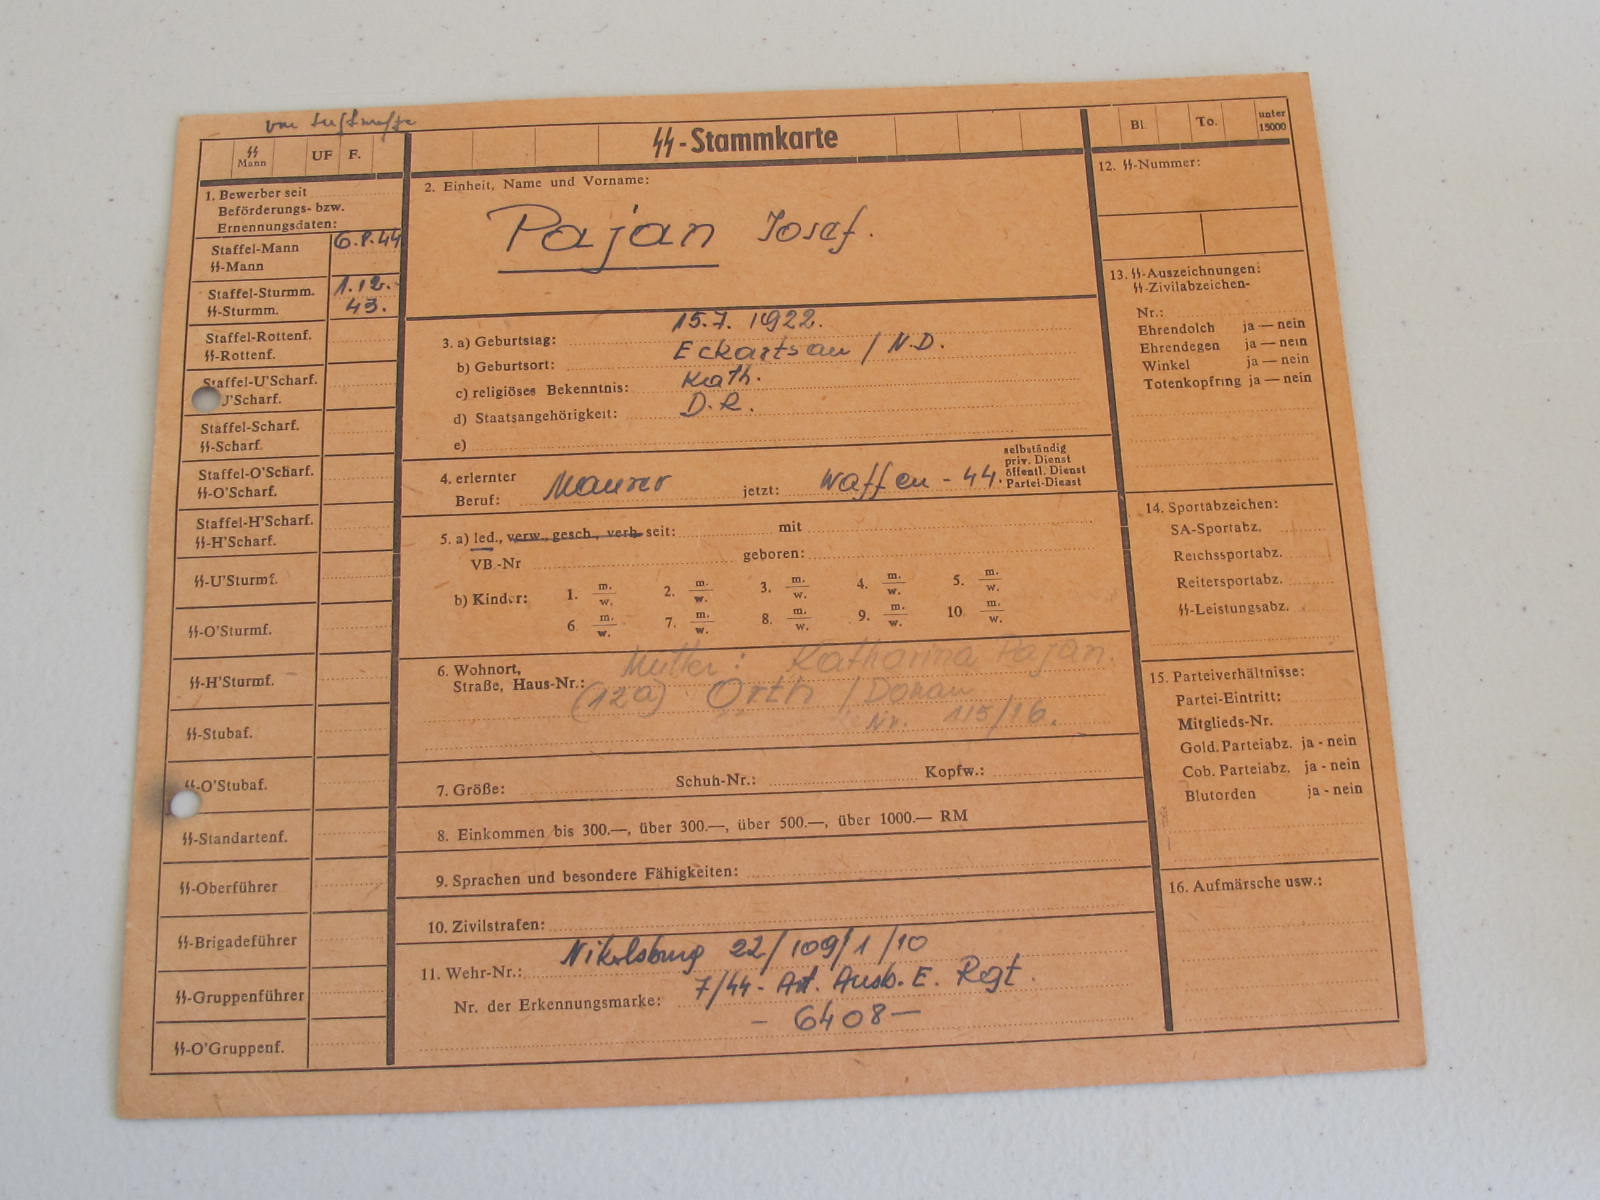 von Luftwaffe
ᛋᛋ Mann UF F.
ᛋᛋ-Stammkarte
Bl. To. unter 15000
1. Bewerber seit
Beförderungs- bzw.
Ernennungsdaten:
Staffel-Mann 6.8.44
ᛋᛋ-Mann
Staffel-Sturmm. 1.12.
ᛋᛋ-Sturmm. 43.
Staffel-Rottenf.
ᛋᛋ-Rottenf.
Staffel-U'Scharf.
U'Scharf.
Staffel-Scharf.
ᛋᛋ-Scharf.
Staffel-O'Scharf.
ᛋᛋ-O'Scharf.
Staffel-H'Scharf.
ᛋᛋ-H'Scharf.
ᛋᛋ-U'Sturmf.
ᛋᛋ-O'Sturmf.
ᛋᛋ-H'Sturmf.
ᛋᛋ-Stubaf.
ᛋᛋ-O'Stubaf.
ᛋᛋ-Standartenf.
ᛋᛋ-Oberführer
ᛋᛋ-Brigadeführer
ᛋᛋ-Gruppenführer
ᛋᛋ-O'Gruppenf.
2. Einheit, Name und Vorname:
Pajan Josef.
3. a) Geburtstag: 15.7. 1922.
b) Geburtsort: Eckartsau / N.D.
c) religiöses Bekenntnis: Kath.
d) Staatsangehörigkeit: D.R.
e)
4. erlernter
Beruf: Maurer jetzt: Waffen-ᛋᛋ.
selbständig
priv. Dienst
öffentl. Dienst
Partei-Dienst
5. a) led., verw., gesch., verh. seit: mit
VB.-Nr geboren:
b) Kinder: 1. m. w. 2. m. w. 3. m. w. 4. m. w. 5. m. w.
6. m. w. 7. m. w. 8. m. w. 9. m. w. 10. m. w.
6. Wohnort, Mutter: Katharina Pajan.
Straße, Haus-Nr.: (12a) Orth / Donau
Nr. 115/16.
7. Größe: Schuh-Nr.: Kopfw.:
8. Einkommen bis 300.—, über 300.—, über 500.—, über 1000.— RM
9. Sprachen und besondere Fähigkeiten:
10. Zivilstrafen:
11. Wehr-Nr.: Nikolsburg 22/109/1/10
Nr. der Erkennungsmarke: 7/ᛋᛋ-Art. Ausb. E. Rgt.
- 6408 -
12. ᛋᛋ-Nummer:
13. ᛋᛋ-Auszeichnungen:
ᛋᛋ-Zivilabzeichen-
Nr.:
Ehrendolch ja — nein
Ehrendegen ja — nein
Winkel ja — nein
Totenkopfring ja — nein
14. Sportabzeichen:
SA-Sportabz.
Reichssportabz.
Reitersportabz.
ᛋᛋ-Leistungsabz.
15. Parteiverhältnisse:
Partei-Eintritt:
Mitglieds-Nr.
Gold. Parteiabz. ja - nein
Cob. Parteiabz. ja - nein
Blutorden ja - nein
16. Aufmärsche usw.: